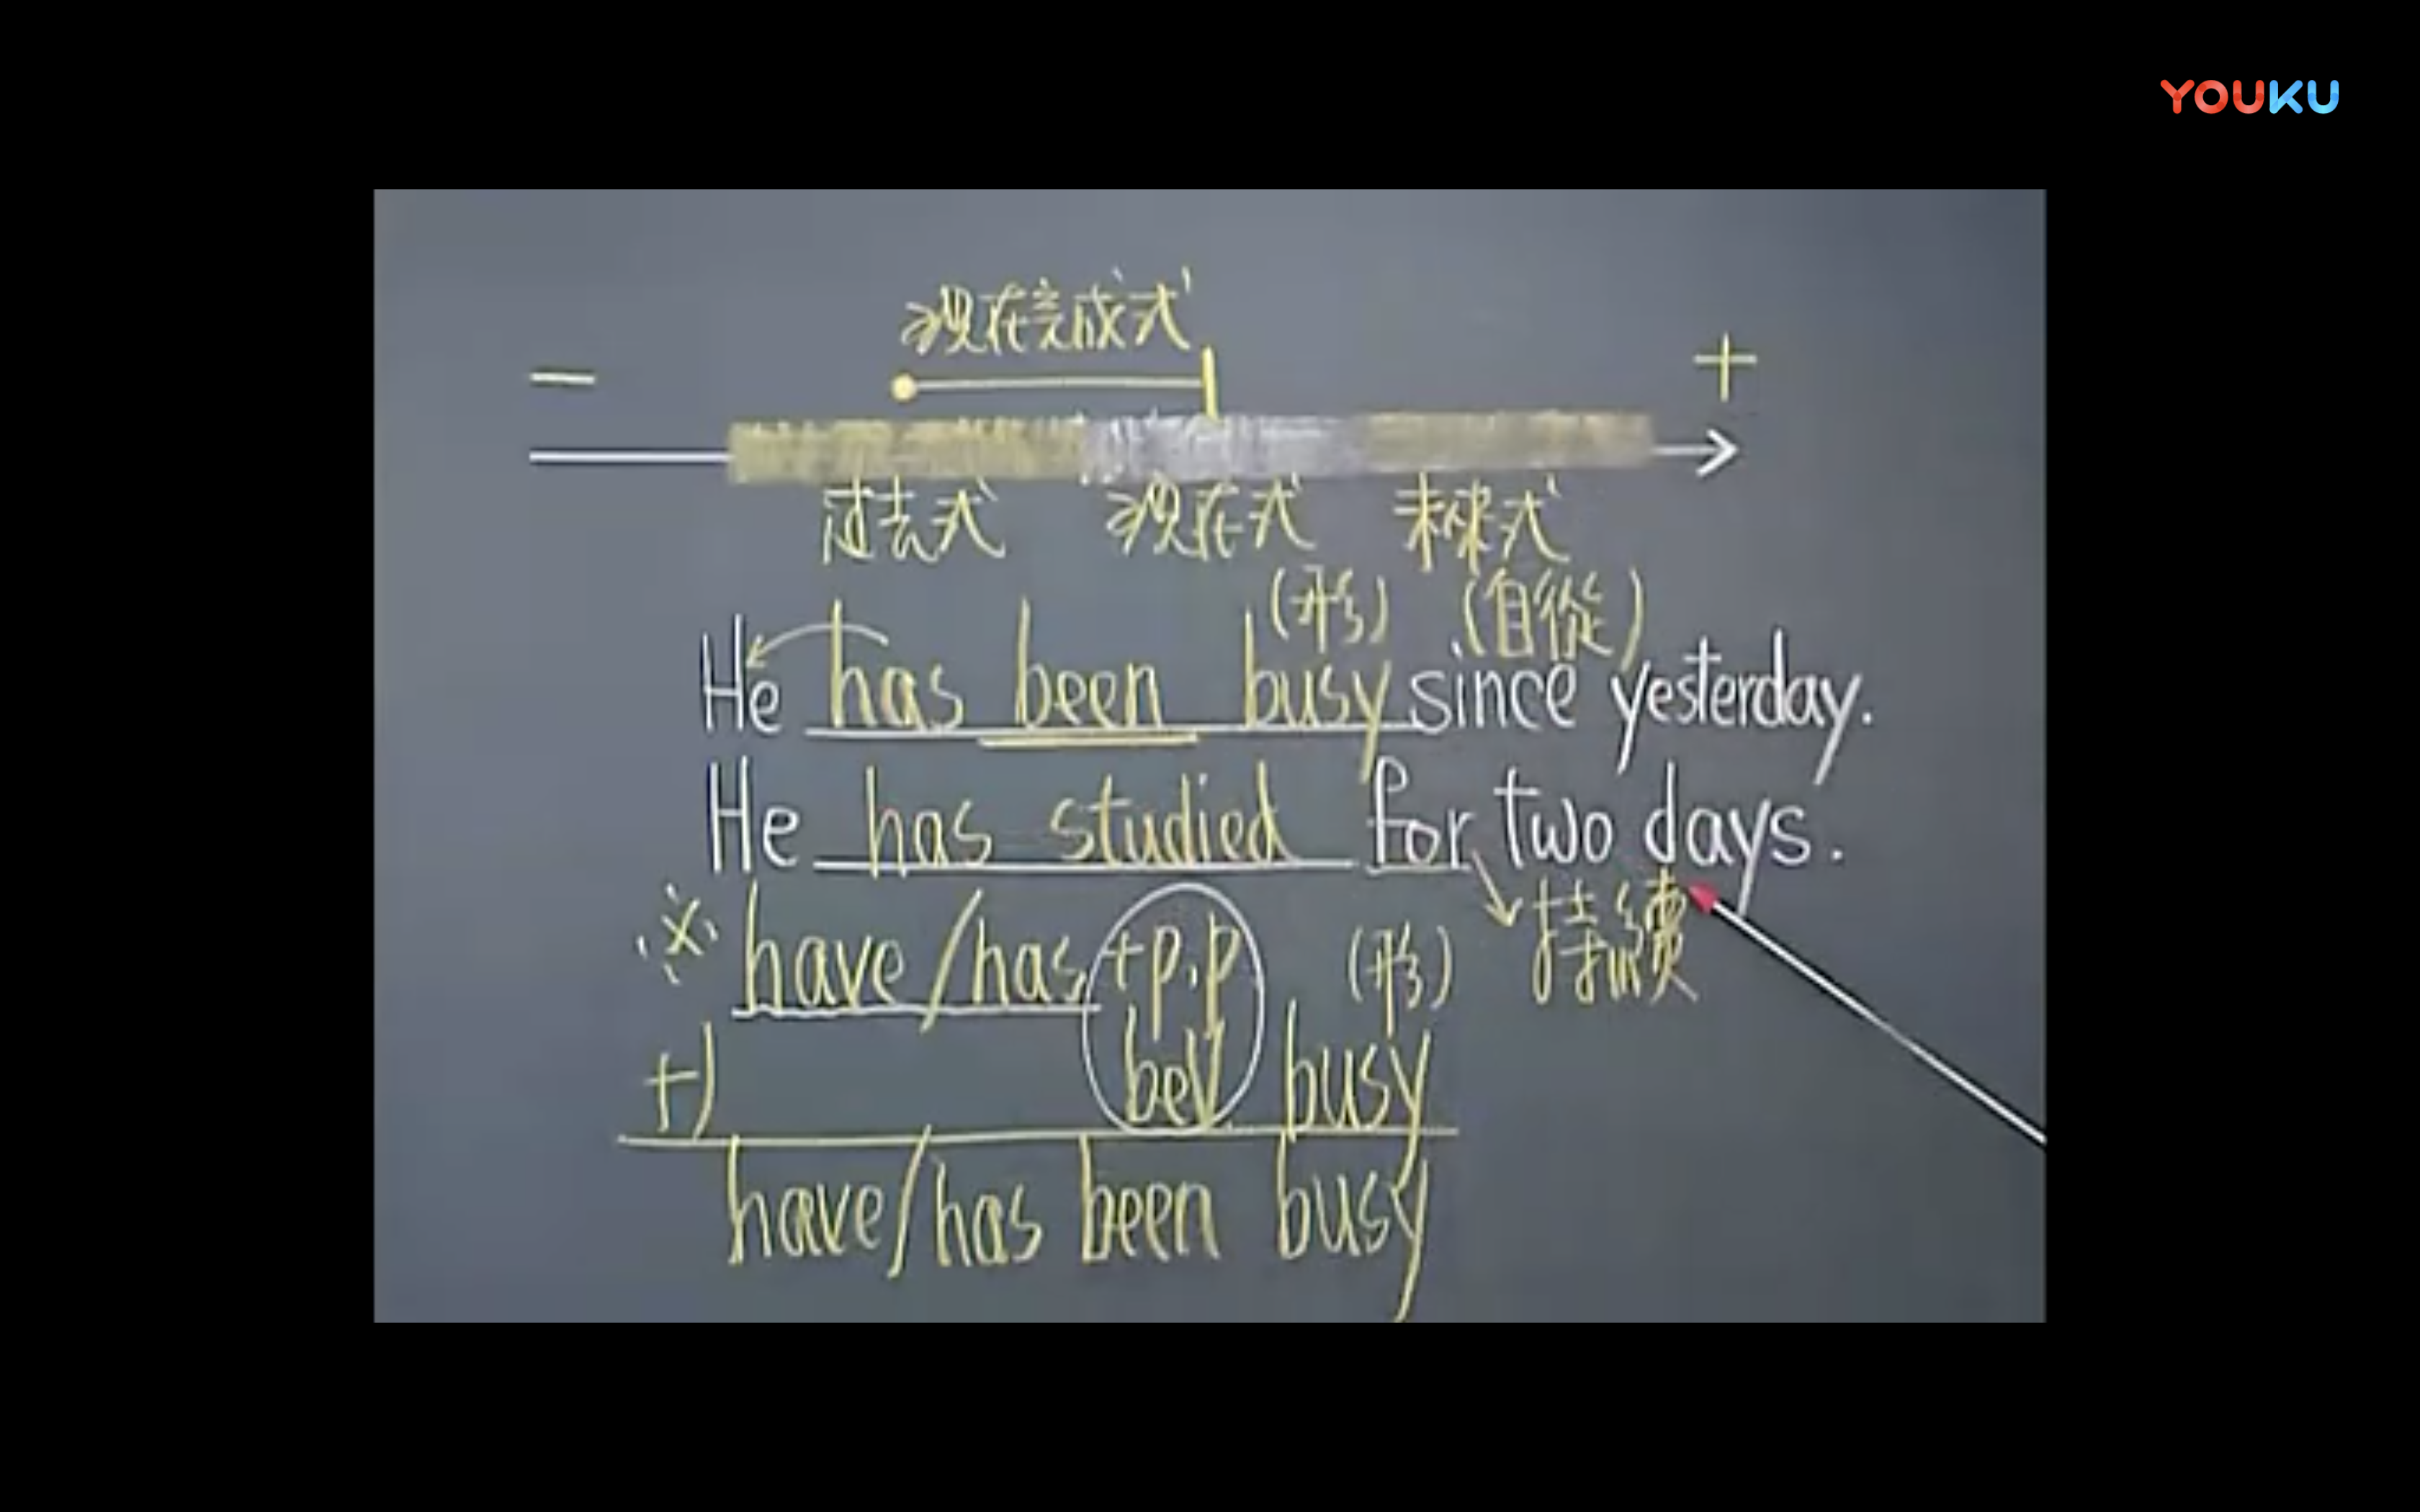 YOUKU
现在完成式
— +
过去式 现在式 未来式
(形) (自從)
He has been busy since yesterday.
He has studied for two days.
※ have/has + p.p (形) 持續
+) beV busy
have/has been busy